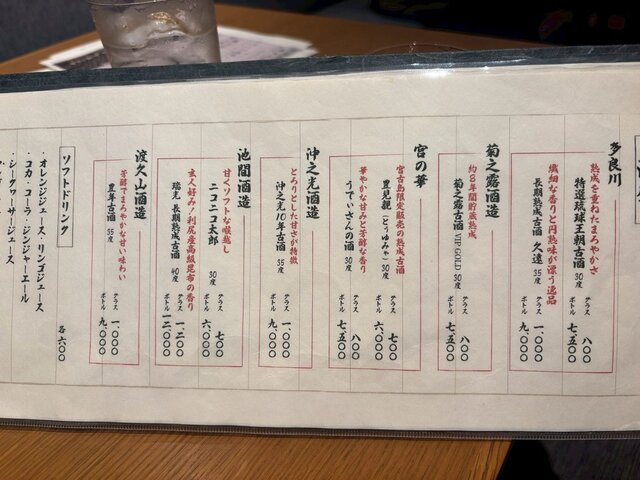 多良川
熟成を重ねたまろやかさ
特選琉球王朝古酒 30度
グラス 八〇〇
ボトル 七、五〇〇
繊細な香りと円熟味が漂う逸品
長期熟成古酒 久遠 35度
グラス 一、〇〇〇
ボトル 九、〇〇〇
菊之露酒造
約8年間貯蔵熟成
菊之露古酒 VIP GOLD 30度
グラス 八〇〇
ボトル 七、五〇〇
宮の華
宮古島限定販売の熟成古酒
豊見親(とぅゆみゃ) 30度
グラス 七〇〇
ボトル 六、〇〇〇
華やかな甘みと芳醇な香り
うでぃさんの酒 30度
グラス 八〇〇
ボトル 七、五〇〇
沖之光酒造
とろりとした甘さが特徴
沖之光10年古酒 35度
グラス 一、〇〇〇
ボトル 九、〇〇〇
池間酒造
甘くソフトな喉越し
ニコニコ太郎 30度
グラス 七〇〇
ボトル 六、〇〇〇
玄人好み!利尻産高級昆布の香り
瑞光 長期熟成古酒 40度
グラス 一、二〇〇
ボトル 一二、〇〇〇
渡久山酒造
芳醇でまろやかな甘い味わい
豊年古酒 35度
グラス 一、〇〇〇
ボトル 九、〇〇〇
ソフトドリンク
各 六〇〇
・オレンジジュース・リンゴジュース
・コカ・コーラ・ジンジャーエール
・シークワーサージュース